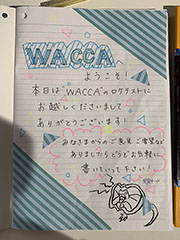 WACCA
ようこそ!
本日は"WACCA"のロケテストに
お越しくださいまして
ありがとうございます!
みなさまからのご意見、ご希望など
ありましたらどうぞお気軽に
書いていって下さい!